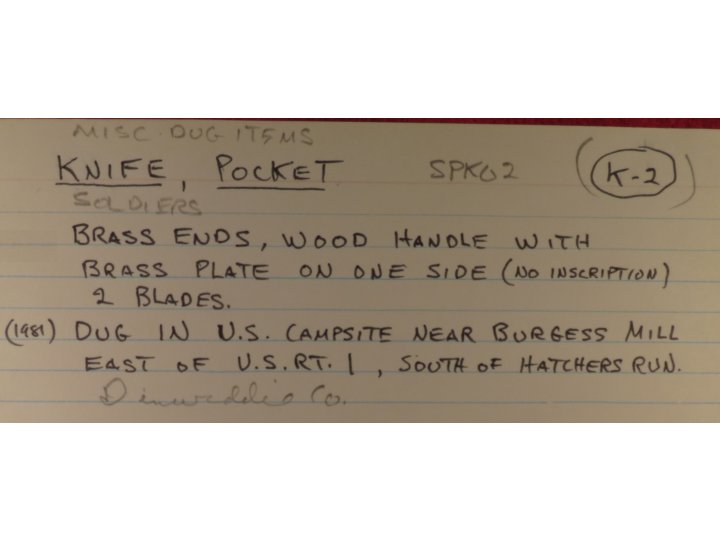 MISC. DUG ITEMS
KNIFE, POCKET SPK02 (K-2)
SOLDIERS
BRASS ENDS, WOOD HANDLE WITH
BRASS PLATE ON ONE SIDE (NO INSCRIPTION)
2 BLADES.
(1981) DUG IN U.S. CAMPSITE NEAR BURGESS MILL
EAST OF U.S. RT. 1, SOUTH OF HATCHERS RUN.
Dinwiddie Co.